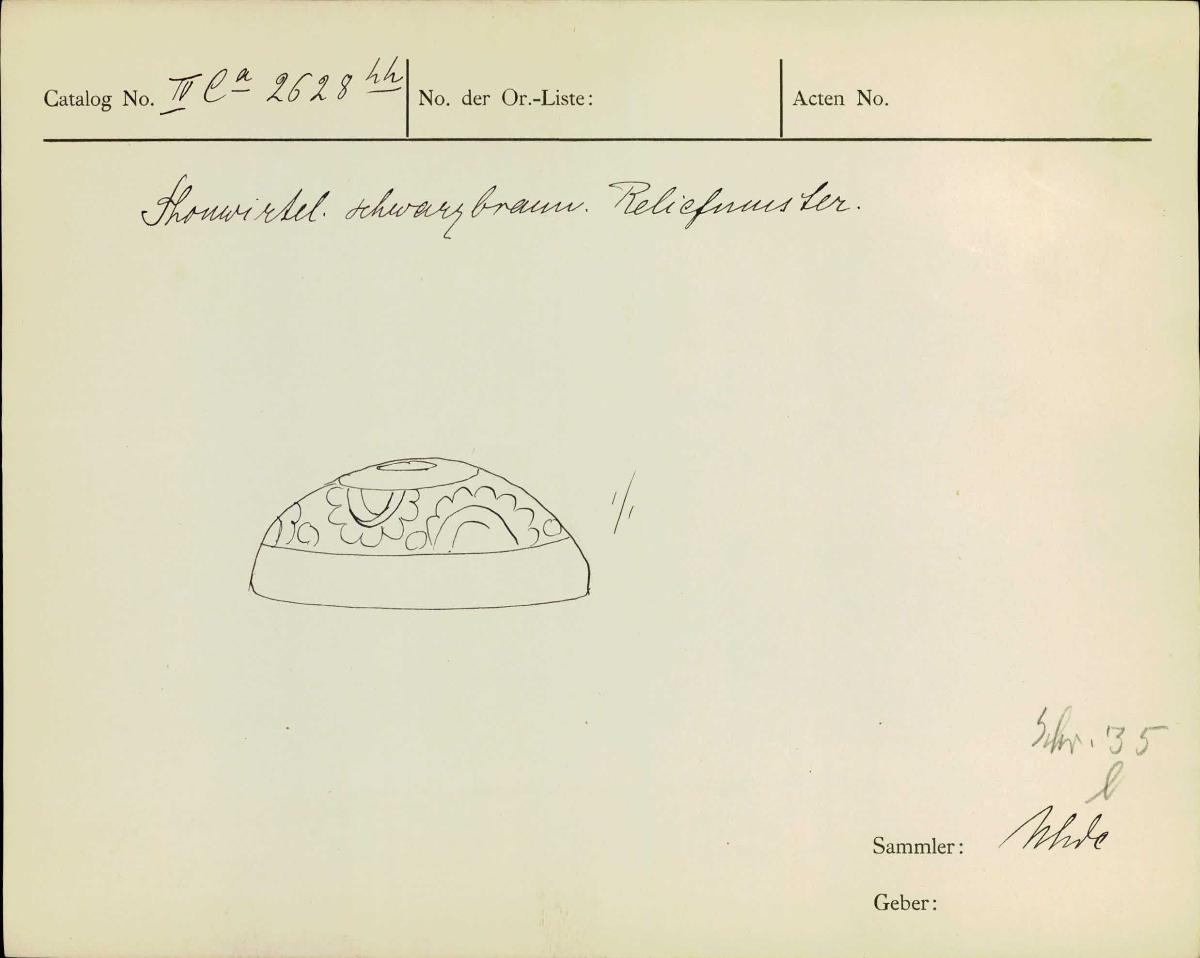 Catalog No. IV Ca 2628 hh No. der Or.-Liste: Acten No.
Thonwirtel. schwarzbraun. Reliefmuster.
1/1
Schr. 35
l
Sammler: Uhde
Geber: